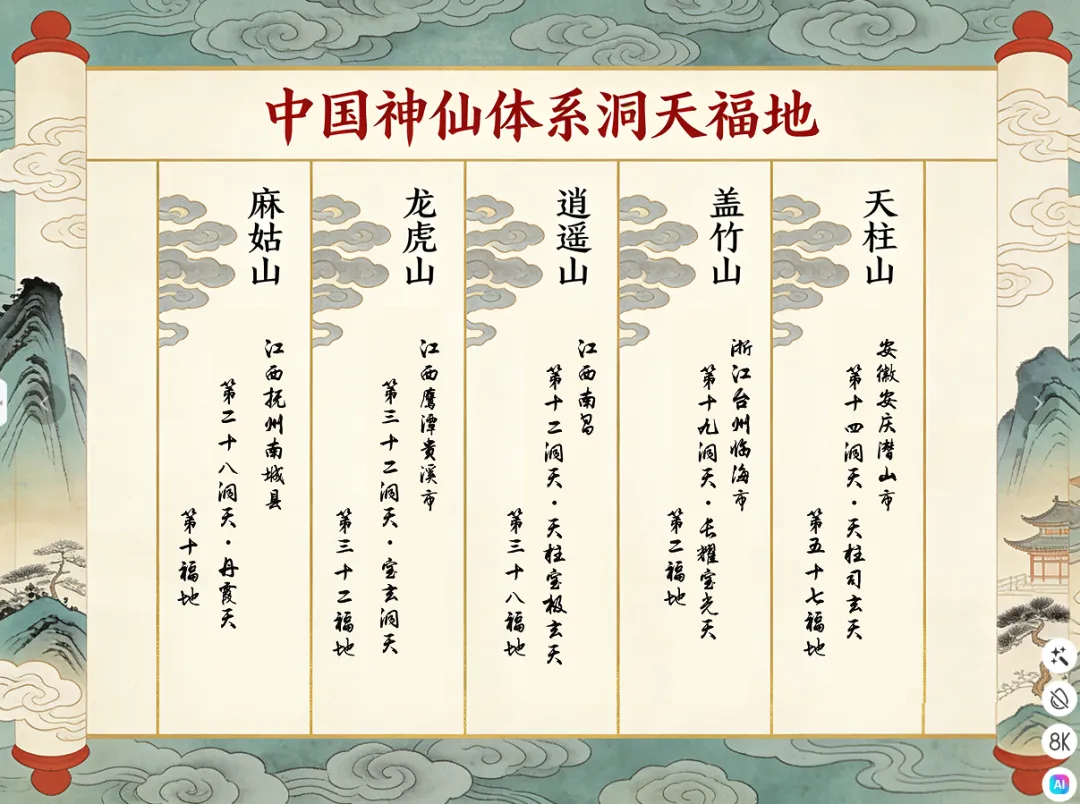 中国神仙体系洞天福地
天柱山
安徽安庆潜山市
第十四洞天·天柱司玄天
第五十七福地
盖竹山
浙江台州临海市
第十九洞天·长耀宝光天
第二福地
逍遥山
江西南昌
第十二洞天·天柱宝极玄天
第三十八福地
龙虎山
江西鹰潭贵溪市
第三十二洞天·宝玄洞天
第三十二福地
麻姑山
江西抚州南城县
第二十八洞天·丹霞天
第十福地
8K
AI